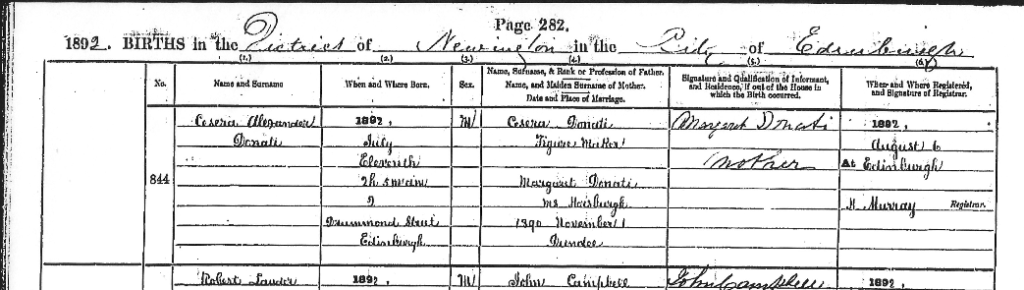 Page 282.
1892. BIRTHS in the District of Newington in the City of Edinburgh
(1.) (2.) (3.) (4.) (5.) (6.)
No.
Name and Surname
When and Where Born.
Sex.
Name, Surname, & Rank or Profession of Father.
Name, and Maiden Surname of Mother.
Date and Place of Marriage.
Signature and Qualification of Informant,
and Residence, if out of the House in
which the Birth occurred.
When and Where Registered,
and Signature of Registrar.
844
Cesera Alexander
Donati
1892,
July
Eleventh
2h 5m am
Drummond Street
Edinburgh
M
Cesera Donati
Figure Maker
Margaret Donati
ms
1890 November 1
Dundee
Margaret Donati
Mother
1892,
August 6
At Edinburgh
Murray Registrar.
Robert Lauder
1892,
M
John Campbell
John Campbell
1892,